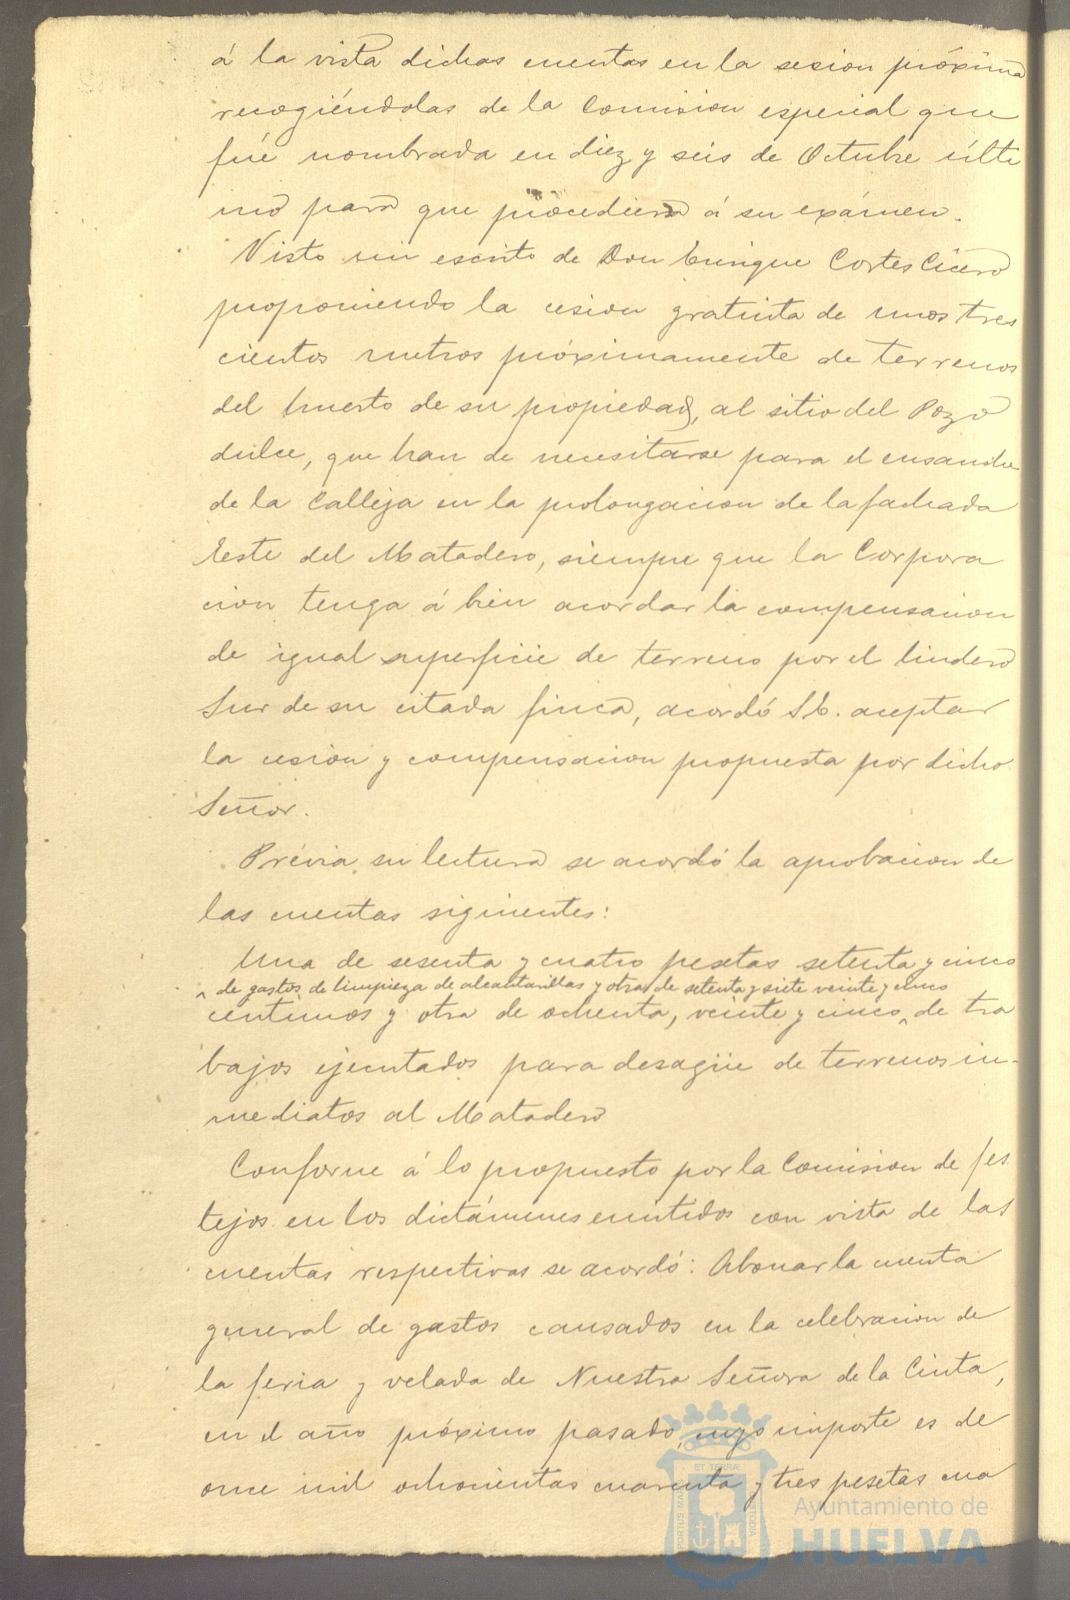 á la vista dichas cuentas en la sesion próxima
recogiéndolas de la Comision especial que
fué nombrada en diez y seis de Octubre últi
mo para que procediera á su exámen.
Visto un escrito de Don Enrique Cortes Cícero
proponiendo la cesion gratuita de unos tres
cientos metros próximamente de terrenos
del huerto de su propiedad, al sitio del Pozo
dulce, que han de necesitarse para el ensanche
de la Calleja en la prolongacion de la fachada
Este del Matadero, siempre que la Corpora
cion tenga á bien acordar la compensacion
de igual superficie de terreno por el lindero
Sur de su citada finca, acordó S.E. aceptar
la cesion y compensacion propuesta por dicho
Señor.
Prévia su lectura se acordó la aprobacion de
las cuentas siguientes:
Una de sesenta y cuatro pesetas setenta y cinco
de gastos de limpieza de alcantarillas y otra de setenta y siete veinte y cinco
centimos y otra de ochenta, veinte y cinco, de tra
bajos ejecutados para desagüe de terrenos in-
mediatos al Matadero
Conforme á lo propuesto por la Comision de fes
tejos en los dictámenes emitidos con vista de las
cuentas respectivas se acordó: Abonar la cuenta
general de gastos causados en la celebracion de
la feria y velada de Nuestra Señora de la Cinta,
en el año próximo pasado, cuyo importe es de
once mil ochocientas cuarenta y tres pesetas cua
PORTUS MARIS
ET TERRAE
CUSTODIA
Ayuntamiento de
HUELVA